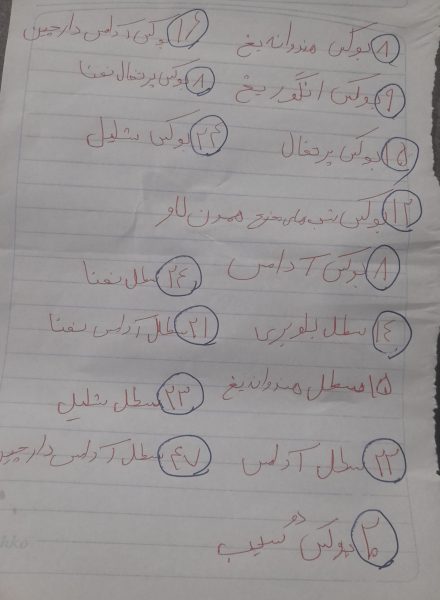 ۸ بوکس هندوانه یخ ۱۶ بوکس آدامس دارچین
۹ بوکس انگور یخ ۸ بوکس پرتغال نعنا
۱۵ بوکس پرتغال ۲۴ بوکس شلیل
۱۲ بوکس
۸ بوکس آدامس ۲۴ سطل نعنا
۱۴ سطل بلوبری ۲۱ سطل آدامس نعنا
۱۵ سطل هندوانه یخ ۲۳ سطل شلیل
۲۲ سطل آدامس ۴۷ سطل آدامس دارچین
۲۰ بوکس دو سیب